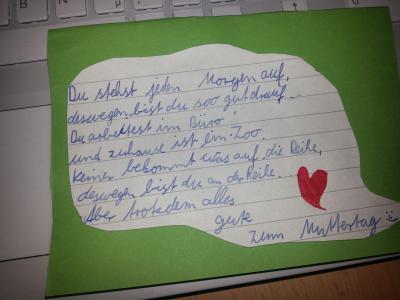 Du stehst jeden Morgen auf,
deswegen bist du soo gut drauf...
Du arbeitest im Büro,
und zuhause ist ein Zoo.
Keiner bekommt was auf die Reihe,
deswegen bist du an der Reihe...
Aber trotzdem alles
gute
zum Muttertag